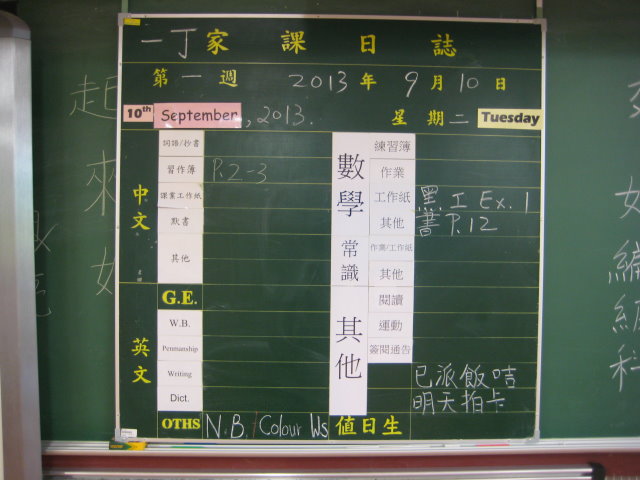 一丁家課日誌
第一週 2013年9月10日
10th September, 2013. 星期二 Tuesday
中文
詞語/抄書
習作簿 P.2-3
課業工作紙
默書
其他
英文
G.E.
W.B.
Penmanship
Writing
Dict.
OTHS N.B./Colour Ws
數學
練習簿
作業
工作紙 黑工 Ex.1
其他 書 P.12
常識
作業/工作紙
其他
其他
閱讀
運動
簽閱通告
已派飯咭
明天拍卡
值日生
起
來